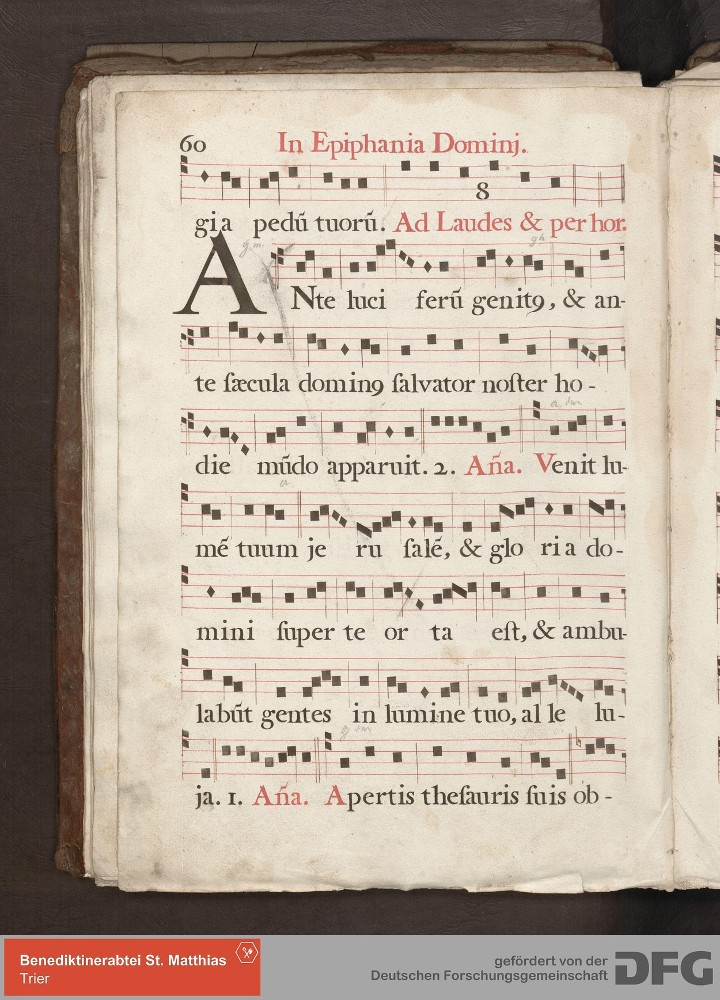 60 In Epiphania Dominj.
8
gia pedū tuorū. Ad Laudes & per hor.
ANte luci ferū genit9, & an-
te sæcula domin9 salvator noster ho-
die mūdo apparuit. 2. Aña. Venit lu-
mē tuum je ru salē, & glo ria do-
mini super te or ta est, & ambu-
labūt gentes in lumine tuo, al le lu-
ja. 1. Aña. Apertis thesauris suis ob-
Benediktinerabtei St. Matthias
Trier
gefördert von der
Deutschen Forschungsgemeinschaft DFG